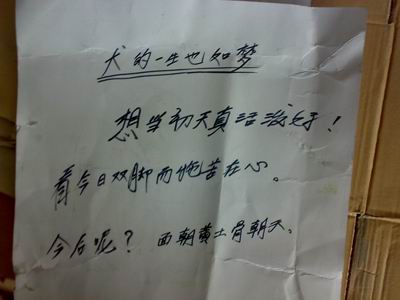 犬的一生也如梦
想当初天真活泼好!
看今日双脚而拖苦在心。
今后呢? 面朝黄土骨朝天。